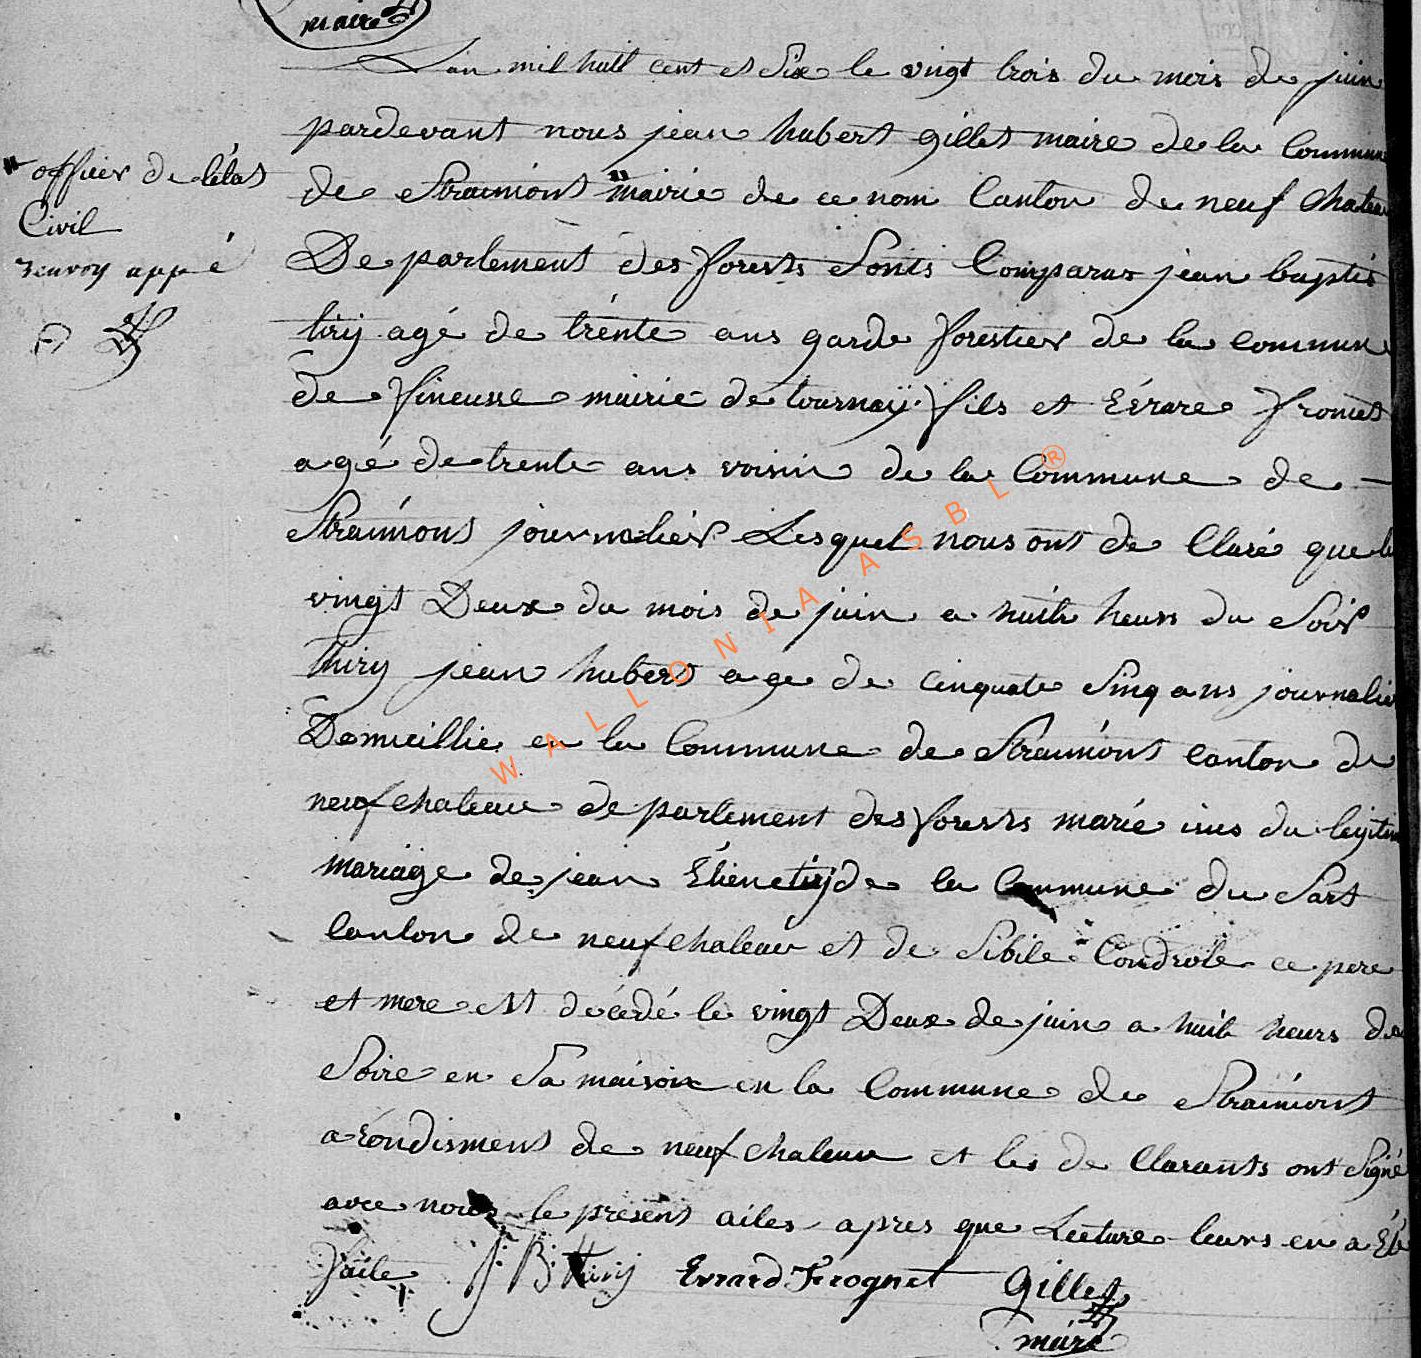 maire
L'an mil huit cent et Six le vingt trois du mois de juin
pardevant nous jean hubert gillet maire de la Commune
" officier de l'état
Civil
renvoy appé
de Straimont " mairie de ce nom Canton de neuf chateau
De partement des forests Sonts Comparus jean baptis
tiry agé de trente ans garde forestier de la commune
de fineusse mairie de tournaÿ fils et Evrare fromet
agé de trente ans voisin de la Commune de
Straimont journalier Lesquel nous ont de Claré que le
vingt Deux du mois de juin a huit heurs du Soir
thiry jean hubert age de cinquate Sinq ans journalier
Domicillie en la Commune de Straimont canton de
neufchateau de partement des forests marié du legitim
mariäge de jean Étiene tirÿ de la Commune du Sart
Canton de neufchateau et de Sibile Condrote ce pere
et mere est décédé le vingt Deux de juin a huit heurs de
Soire en Sa maison en la Commune de Straimont
a rondisment de neufchateau et les de Clarants ont Signé
avec nous le present actes apres que Lecture leurs en a Été
faite J: B: thiry Evrard Frognet Gillet
maire
WALLONIA ASBL ®